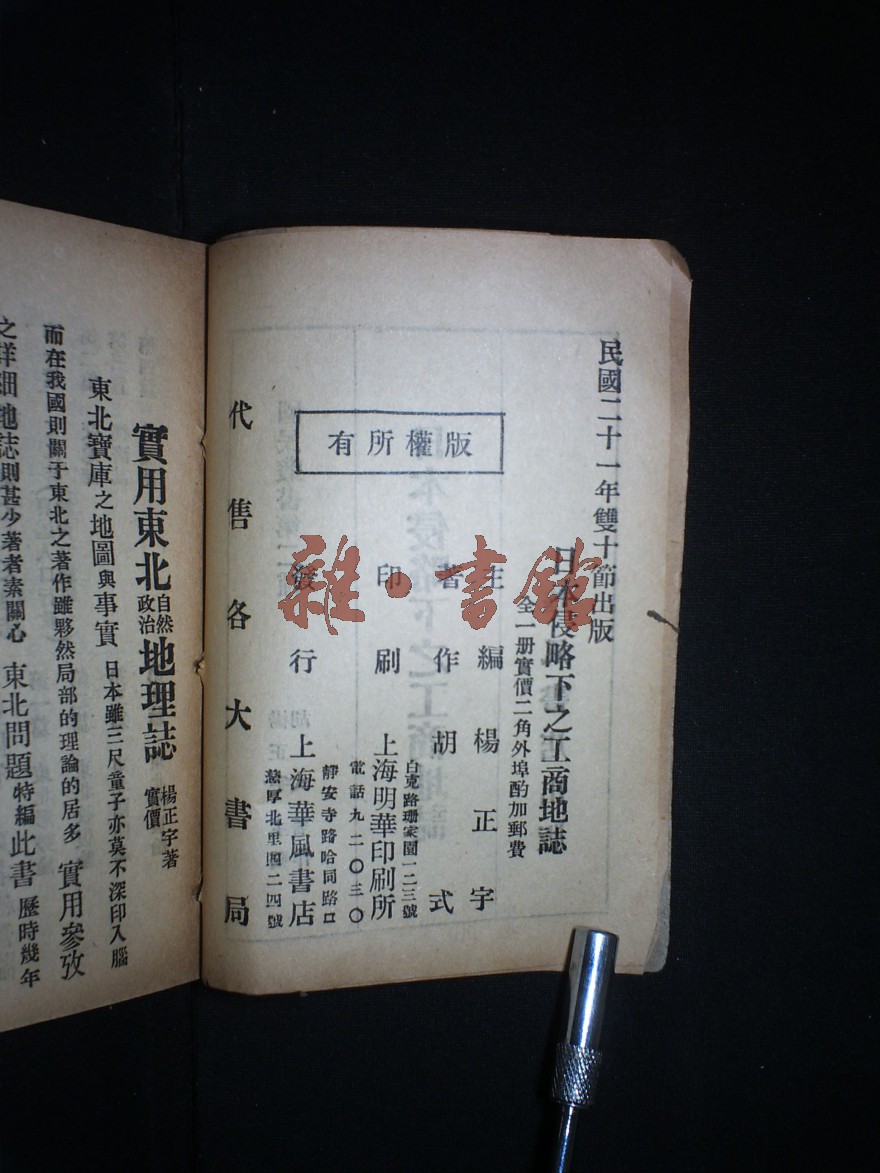 民國二十一年雙十節出版
日本侵略下之工商地誌
全一册實價二角外埠酌加郵費
主編楊正宇
著作胡式
印刷上海明華印刷所
白克路珊家園一二三號
電話九二〇三〇
發行上海華風書店
靜安寺路哈同路口
慈厚北里四二四號
代售各大書局
版權所有
雜·書館
實用東北自然政治地理誌 楊正宇著 實價
東北寶庫之地圖與事實 日本雖三尺童子亦莫不深印入腦
而在我國則關于東北之著作雖夥然局部的理論的居多 實用參攷
之詳細地誌則甚少著者素關心 東北問題特編此書歷時幾年